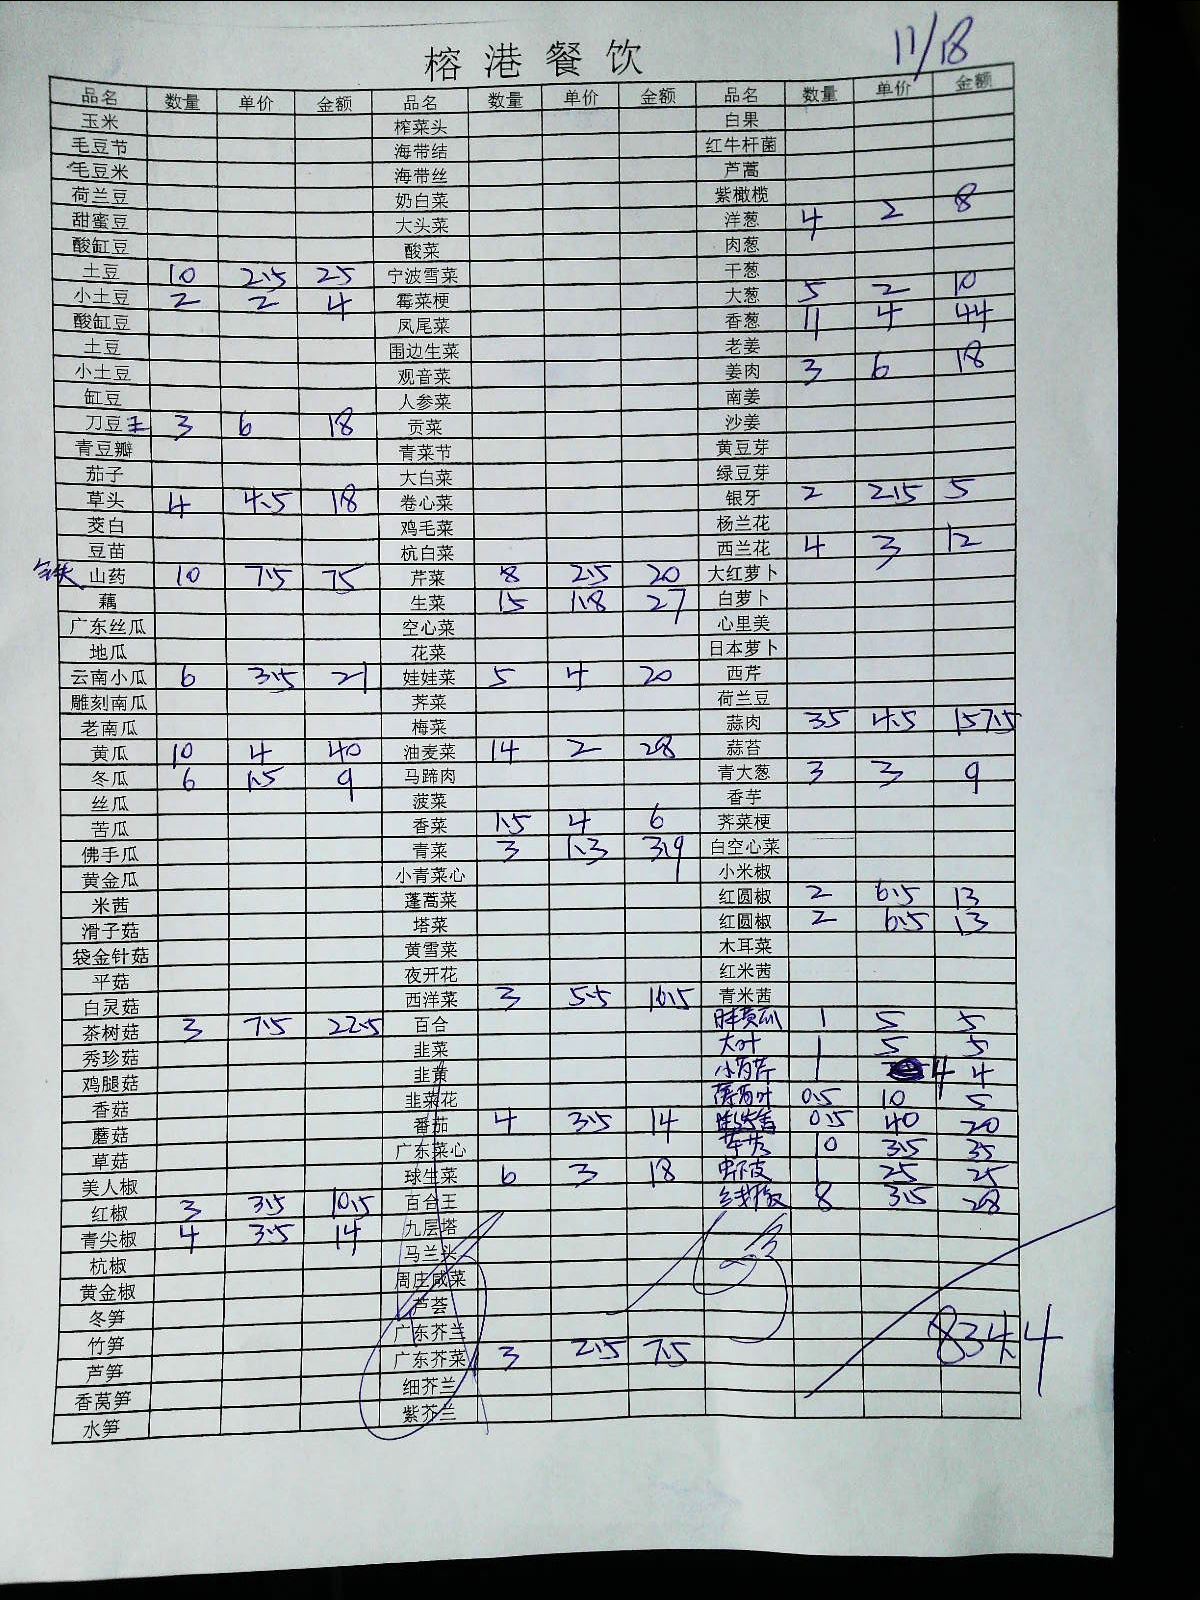 榕港餐饮
11/18
品名 数量 单价 金额 品名 数量 单价 金额 品名 数量 单价 金额
玉米 榨菜头 白果
毛豆节 海带结 红牛杆菌
毛豆米 海带丝 芦蒿
荷兰豆 奶白菜 紫橄榄
甜蜜豆 大头菜 洋葱 4 2 8
酸缸豆 酸菜 肉葱
土豆 10 2.5 25 宁波雪菜 干葱
小土豆 2 2 4 霉菜梗 大葱 5 2 10
酸缸豆 凤尾菜 香葱 11 4 44
土豆 围边生菜 老姜
小土豆 观音菜 姜肉 3 6 18
缸豆 人参菜 南姜
刀豆王 3 6 18 贡菜 沙姜
青豆瓣 青菜节 黄豆芽
茄子 大白菜 绿豆芽
草头 4 4.5 18 卷心菜 银牙 2 2.5 5
茭白 鸡毛菜 杨兰花
豆苗 杭白菜 西兰花 4 3 12
铁山药 10 7.5 75 芹菜 8 2.5 20 大红萝卜
藕 生菜 15 1.8 27 白萝卜
广东丝瓜 空心菜 心里美
地瓜 花菜 日本萝卜
云南小瓜 6 3.5 21 娃娃菜 5 4 20 西芹
雕刻南瓜 荠菜 荷兰豆
老南瓜 梅菜 蒜肉 35 4.5 157.5
黄瓜 10 4 40 油麦菜 14 2 28 蒜苔
冬瓜 6 1.5 9 马蹄肉 青大葱 3 3 9
丝瓜 菠菜 香芋
苦瓜 香菜 1.5 4 6 荠菜梗
佛手瓜 青菜 3 1.3 3.9 白空心菜
黄金瓜 小青菜心 小米椒
米茜 蓬蒿菜 红圆椒 2 6.5 13
滑子菇 塔菜 红圆椒 2 6.5 13
袋金针菇 黄雪菜 木耳菜
平菇 夜开花 红米茜
白灵菇 西洋菜 3 5.5 16.5 青米茜
茶树菇 3 7.5 22.5 百合 黄瓜 1 5 5
秀珍菇 韭菜 大叶 1 5 5
鸡腿菇 韭黄 1 4 4
香菇 韭菜花 0.5 10 5
蘑菇 番茄 4 3.5 14 0.5 40 20
草菇 广东菜心 10 3.5 35
美人椒 球生菜 6 3 18 虾皮 25 25
红椒 3 3.5 10.5 百合王 8 3.5 28
青尖椒 4 3.5 14 九层塔
杭椒 马兰头
黄金椒 周庄咸菜
冬笋 芦荟
竹笋 广东芥兰
芦笋 广东芥菜 3 2.5 7.5
香莴笋 细芥兰
水笋 紫芥兰
834.4